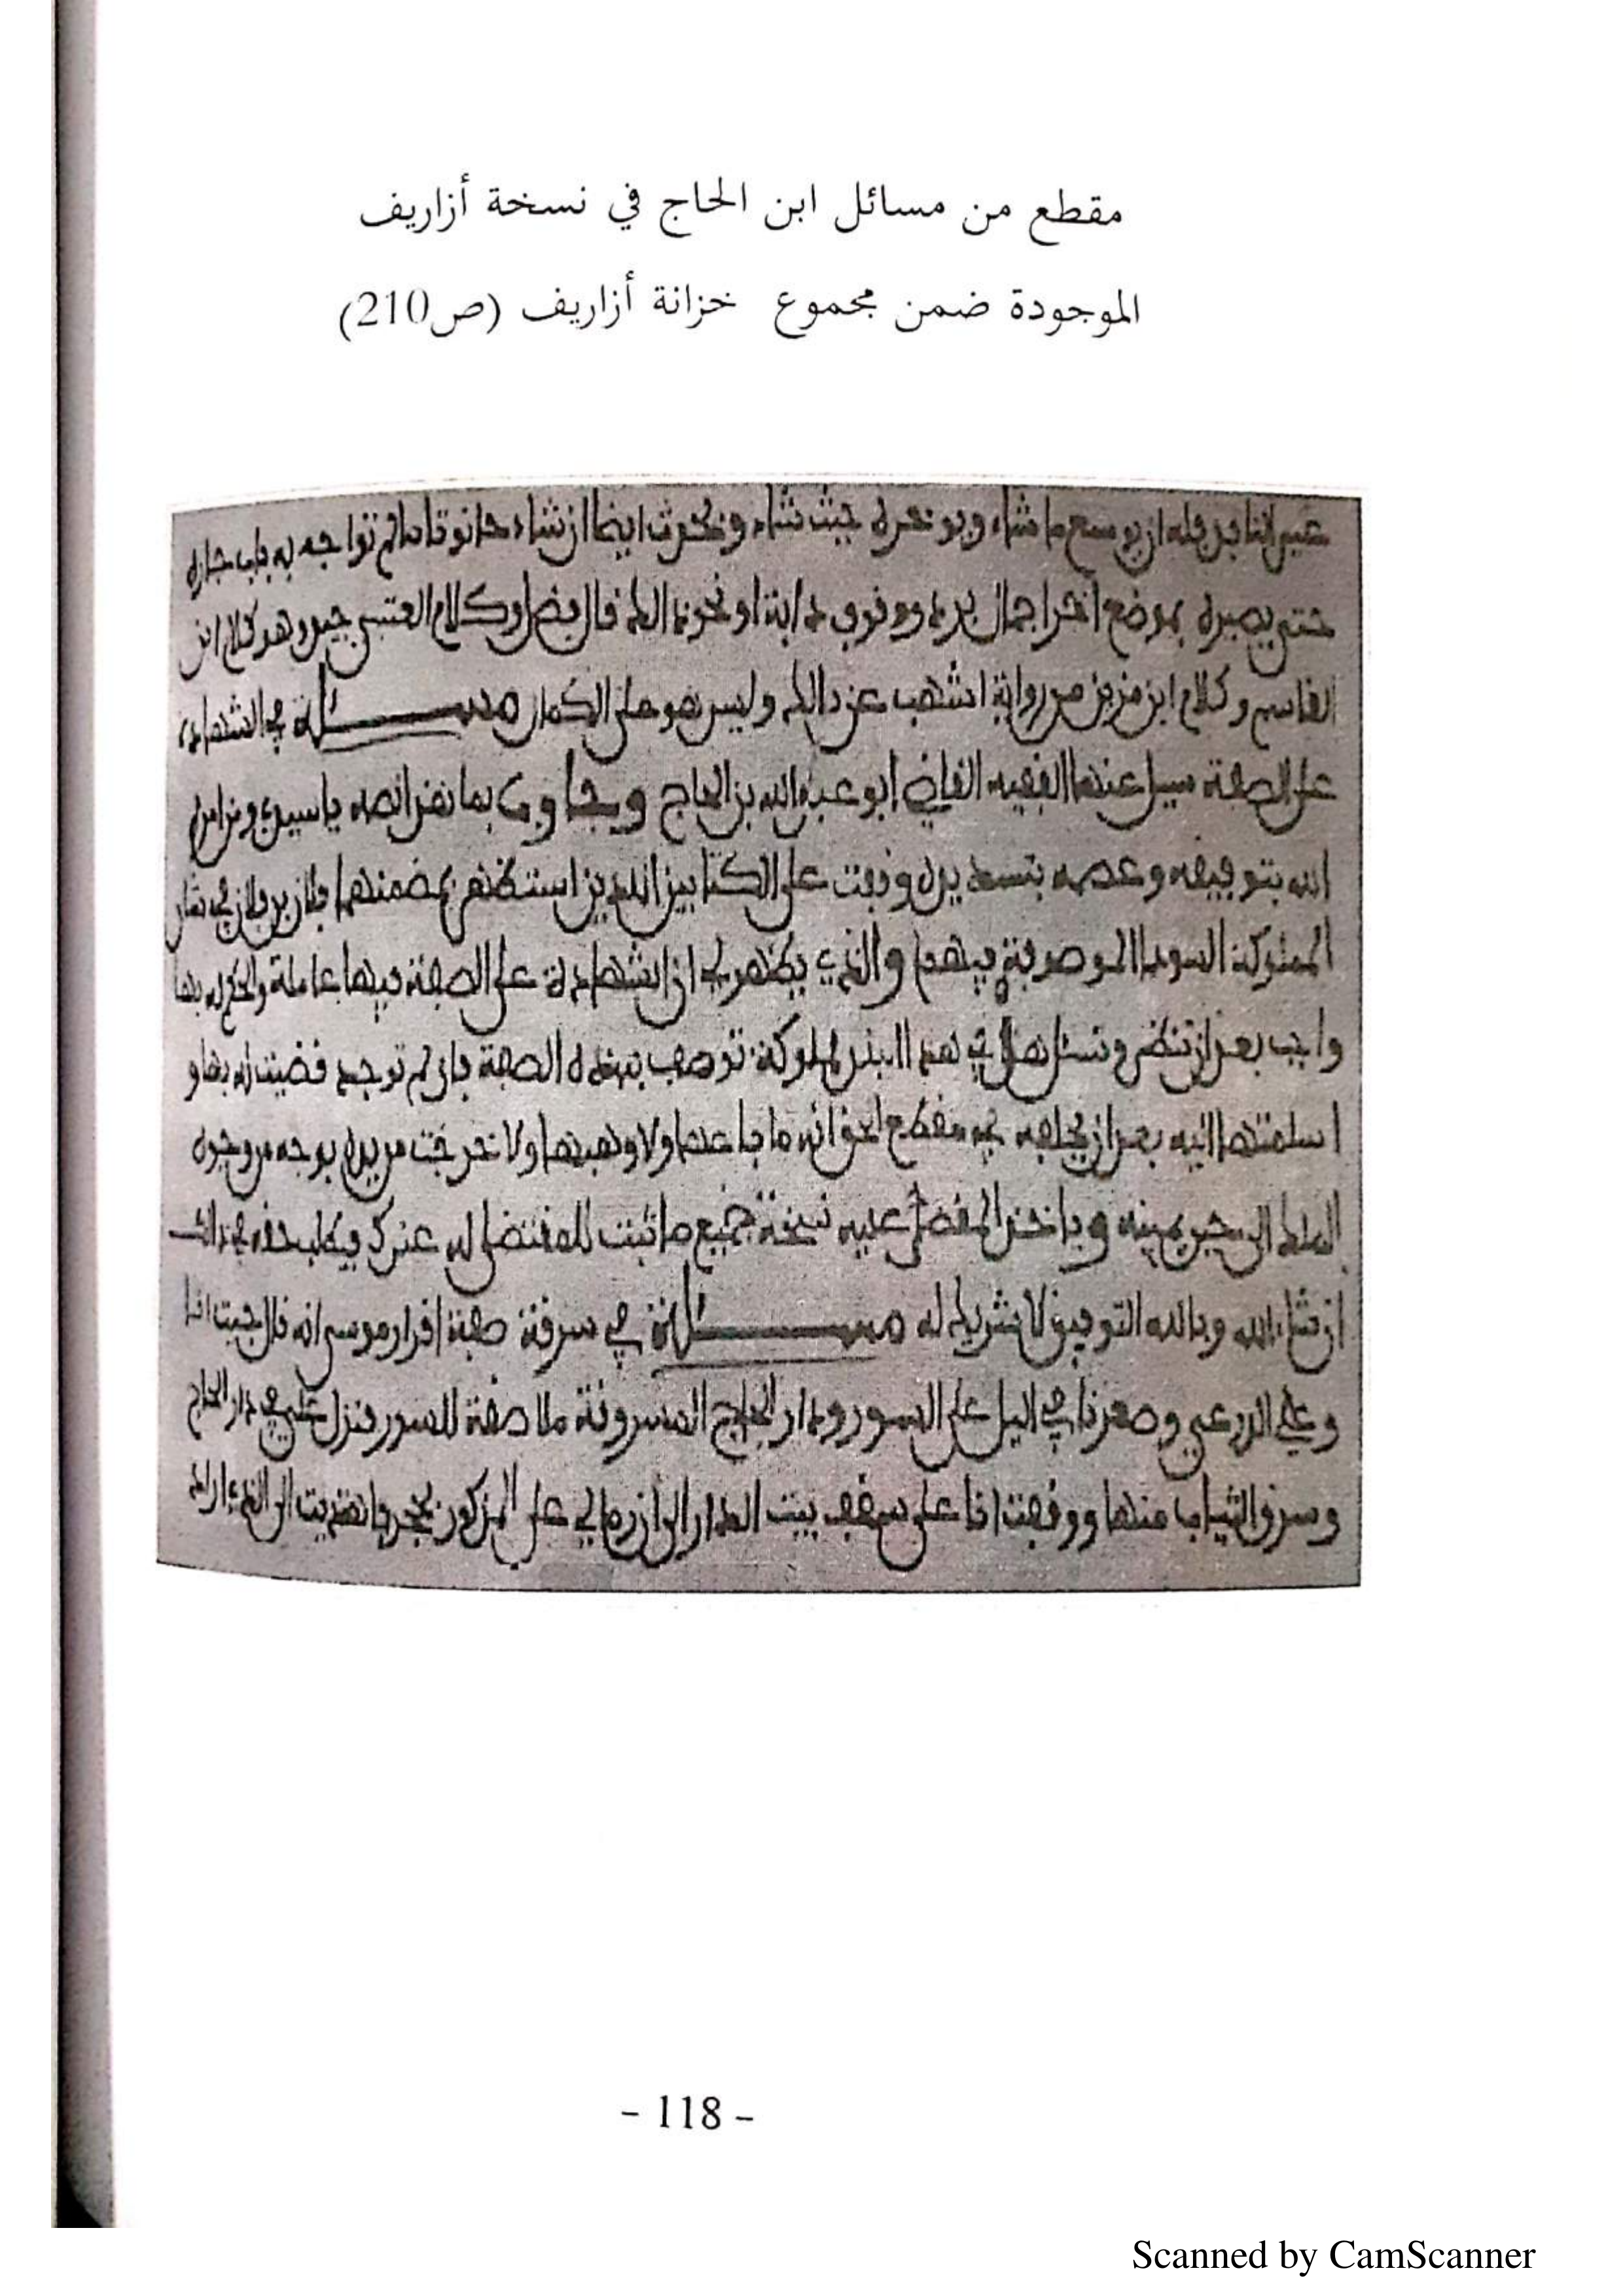 مقطع من مسائل ابن الحاج في نسخة أزاريف
الموجودة ضمن مجموع خزانة أزاريف (ص210)
فله ان يوسع ما شاء حيث شاء ايضا ان شاء حانوتا ما لم تواجه به باب جاره
حتى يصيره بموضع دابة او نحو ذالك قال وكلام العتبي وهو كلام ابن
القاسم وكلام ابن مزين من رواية اشهب عن ذالك وليس هو على الكمال مسئلة في الشهادة
على الصفة سيل عنها الفقيه القاضي ابو عبد الله بن الحاج وجاوب بما نصه يا سيدي ومن امره
الله بتوفيقه وعصمه بتسديده وقفت على الكتابين الذين استظهر بمضمنهما فلان بن فلان في شان
المملوكة السودا الموصوفة فيهما والذي يظهر لي ان الشهادة على الصفة فيها عاملة والحكم له بها
واجب بعد ان تنظر وتسئل هل في هذا البلد مملوكة توصف بهذه الصفة فان لم توجد قضيت له بها و
اسلمتها اليه بعد ان يحلف في مقطع الحق انه ما باعها ولا وهبها ولا خرجت من يده بوجه من وجوه
الملك الى حين يمينه وياخذ المقضى عليه نسخة جميع ما ثبت للمقتضى له عندك ويطلب حقه في ذالك
ان شاء الله وبالله التوفيق لا شريك له مسئلة في سرقة صفة اقرار موسى انه قال جيت انا
وعلي وصعدنا في اليل على السور ودار الحاج المسروقة ملاصقة للسور فنزل علي في دار الحاج
وسرق الثياب منها ووقفت انا على سقف بيت الدار الى ان رمى لي علي المذكور
- 118 -
Scanned by CamScanner